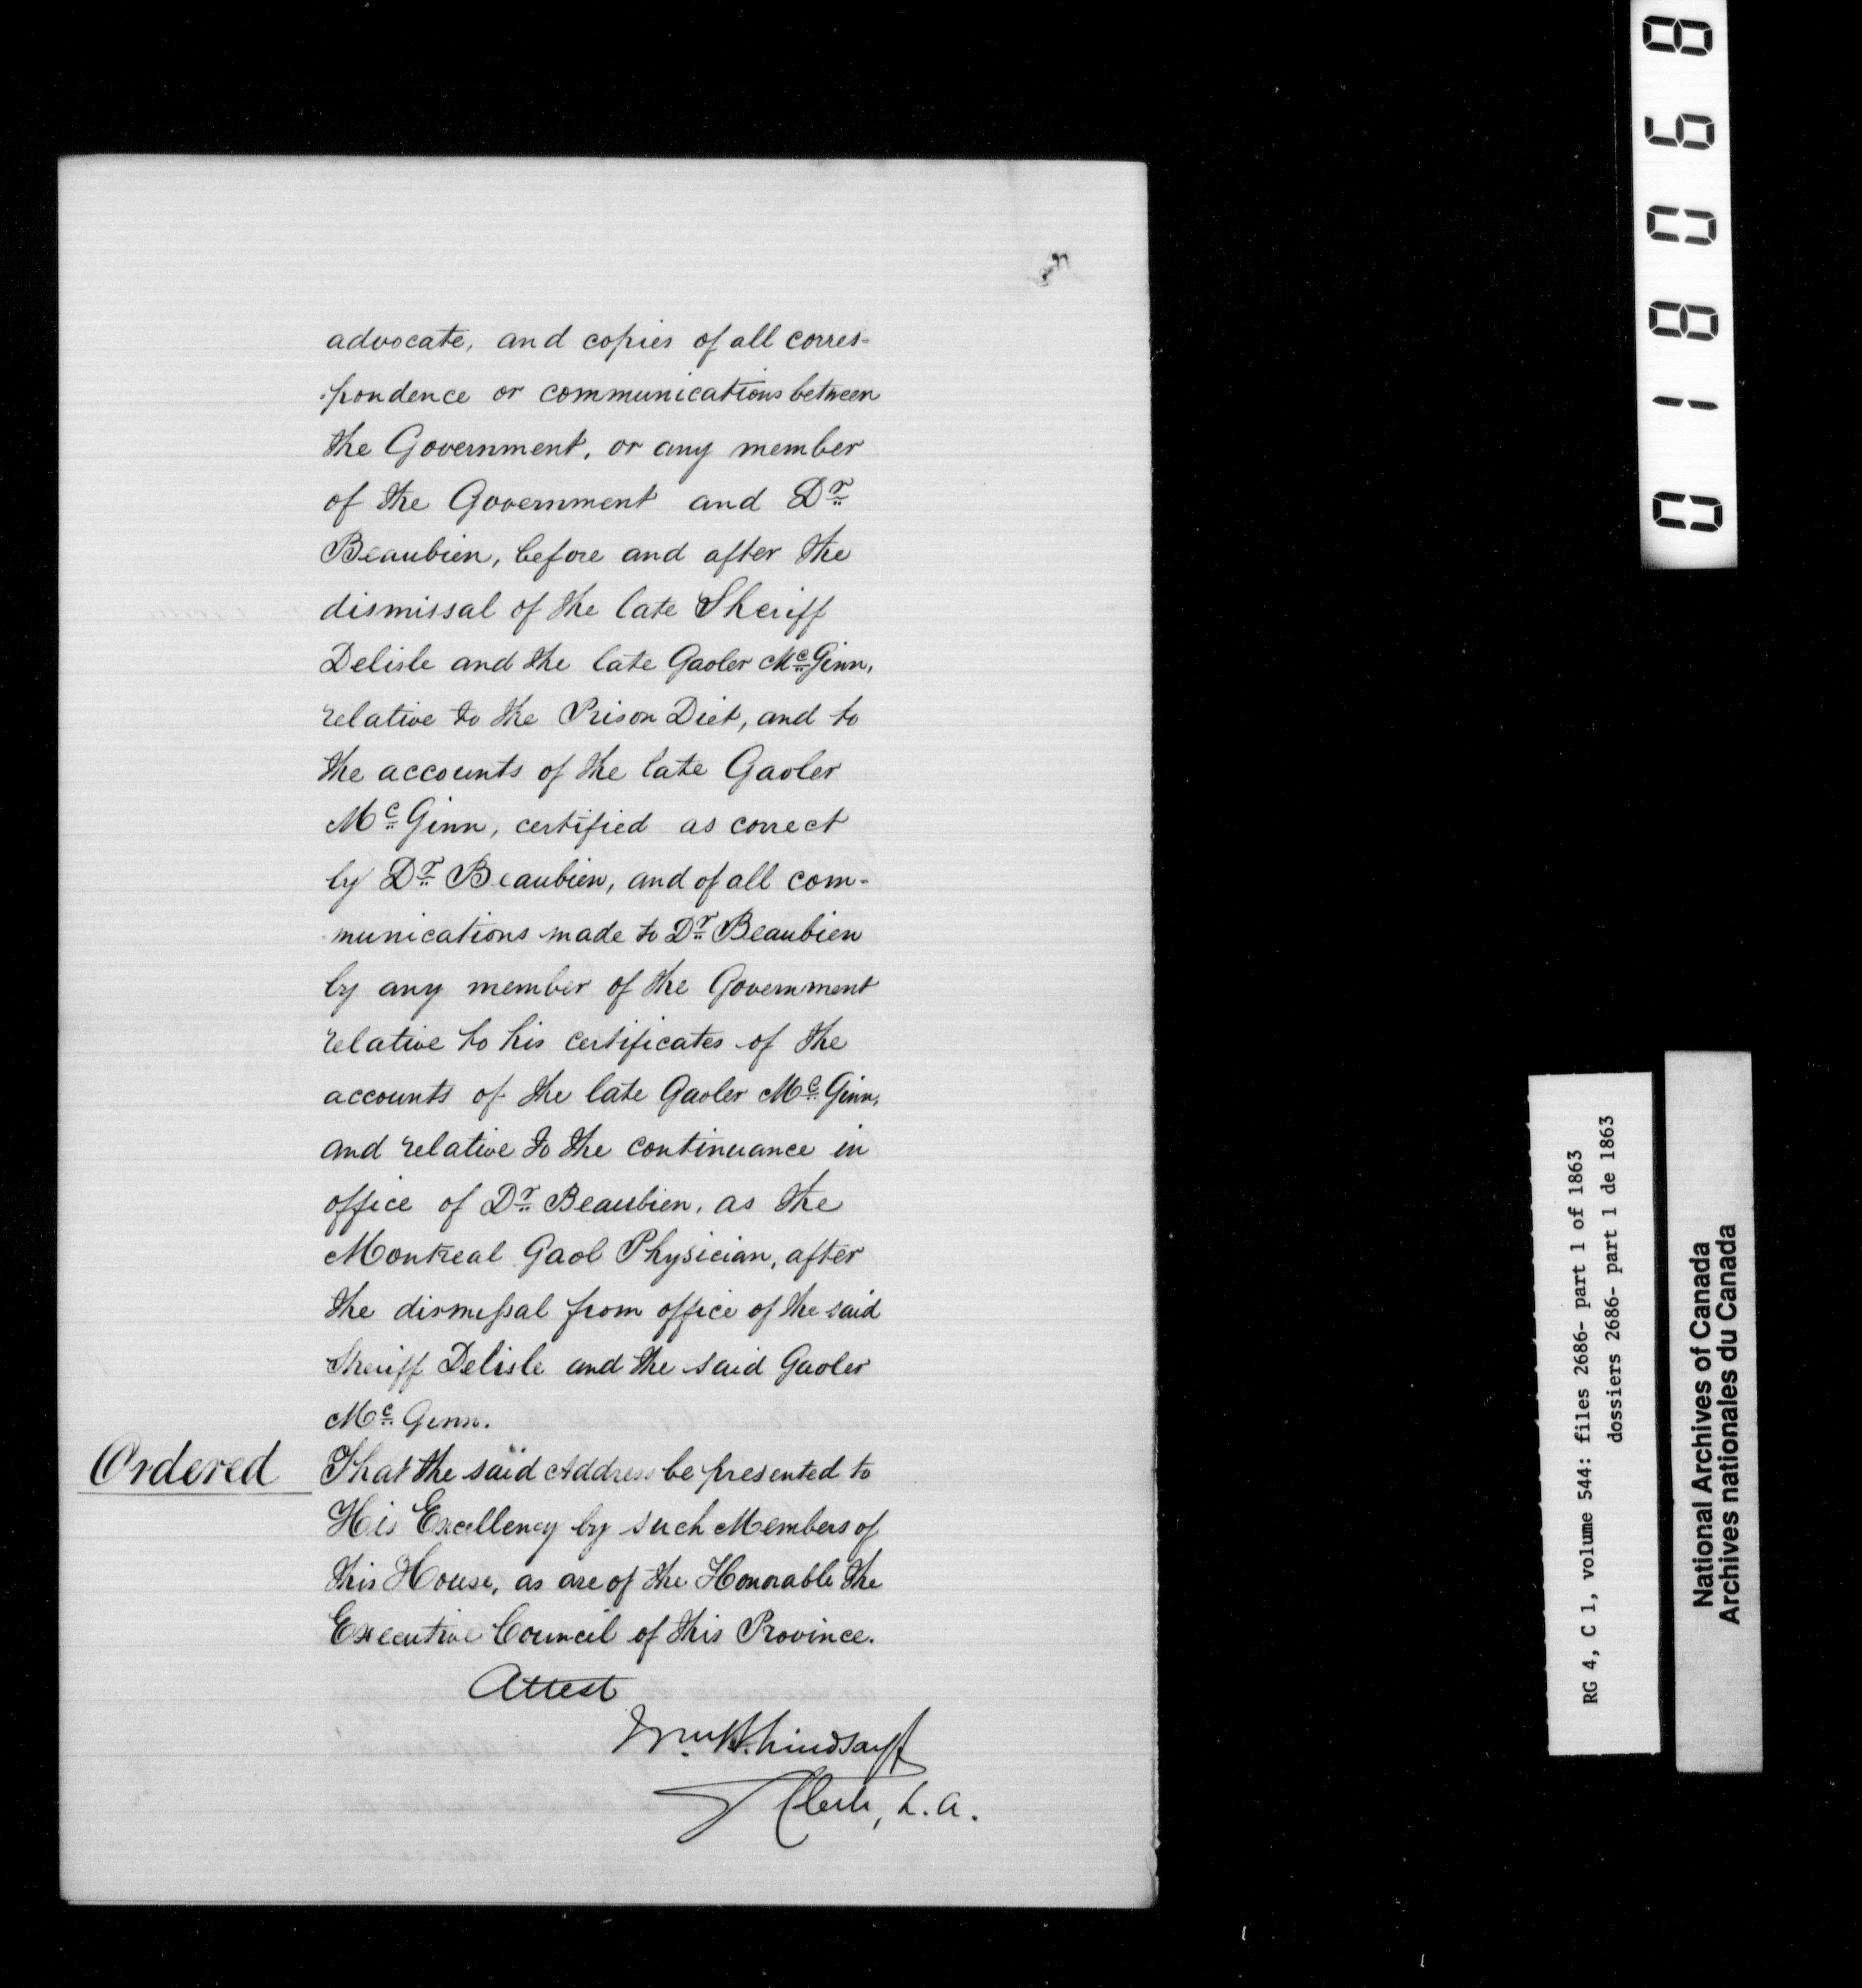 advocate, and copies of all corres-
-pondence or communications between
the Government, or any member
of the Government and Dr
Beaubien, before and after the
dismissal of the late Sheriff
Delisle and the late Gaoler McGinn,
relative to the Prison Diet, and to
the accounts of the late Gaoler
Mc Ginn, certified as correct
by Dr Beaubien, and of all com-
munications made to Dr Beaubien
by any member of the Government
relative to his certificates of the
accounts of the late Gaoler Mc Ginn,
and relative to the continuance in
office of Dr Beaubien, as the
Montreal Gaol Physician, after
the dismissal from office of the said
Sheriff Delisle and the said Gaoler
Mc Ginn.
Ordered That the said Address be presented to
His Excellency by such Members of
this House, as are of the Honorable the
Executive Council of this Province.
Attest
Wm. B. Lindsay
Clerk, L.A.
018068
RG 4, C 1, volume 544: files 2686- part 1 of 1863
dossiers 2686- part 1 de 1863
National Archives of Canada
Archives nationales du Canada